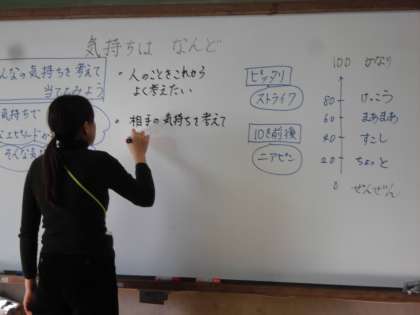 気持ちは なんど
んなの気持ちを考えて
当てみよう
気持ちで
そんな気
・人のことをこれから
よく考えたい
・相手の気持ちを考えて
ピッタリ
ストライク
10き前後
ニアピン
100 かなり
80 けっこう
60 まあまあ
40 すこし
20 ちょっと
0 ぜんぜん